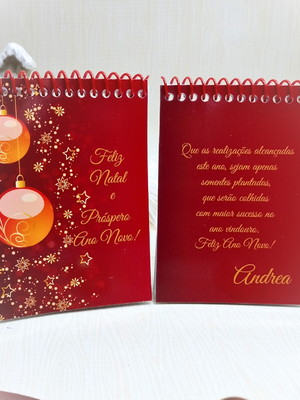 Feliz
Natal
e
Próspero
Ano Novo!
Que as realizações alcançadas
este ano, sejam apenas
sementes plantadas,
que serão colhidas
com maior sucesso no
ano vindouro.
Feliz Ano Novo!
Andrea